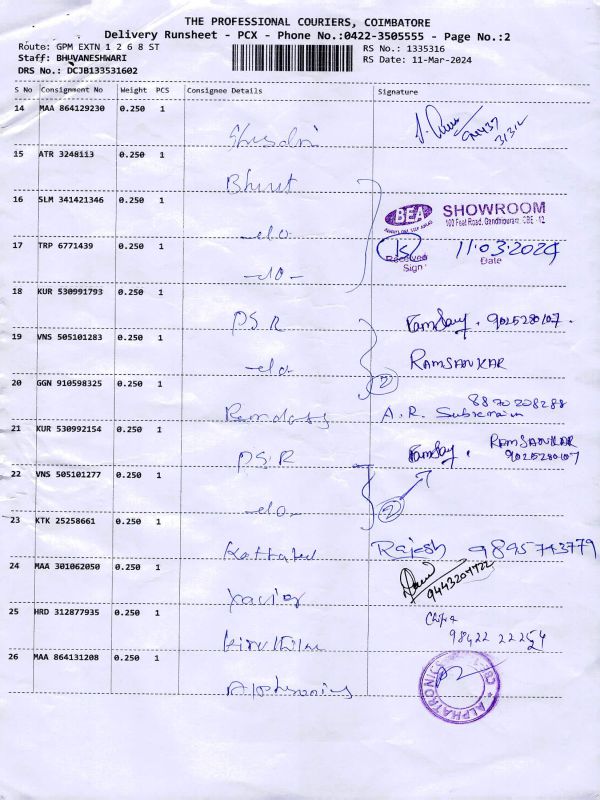 THE PROFESSIONAL COURIERS, COIMBATORE
Delivery Runsheet - PCX - Phone No.:0422-3505555 - Page No.:2
Route: GPM EXTN 1 2 6 8 ST
RS No.: 1335316
Staff: BHUVANESHWARI
RS Date: 11-Mar-2024
DRS No.: DCJB133531602
S No Consignment No Weight PCS Consignee Details Signature
14 MAA 864129230 0.250 1
15 ATR 3248113 0.250 1
Bharat
16 SLM 341421346 0.250 1
-do-
BEA SHOWROOM
100 Feet Road, Gandhipuram, CBE - 12
17 TRP 6771439 0.250 1
-do-
Received
Sign
11.03.2024
Date
18 KUR 530991793 0.250 1
P.S.R
Ramsay. 9025280107.
19 VNS 505101283 0.250 1
-do-
RAMSANKAR
20 GGN 910598325 0.250 1
Ramdoss
2
8870208288
A.R.
21 KUR 530992154 0.250 1
P.S.R
Ramsay.
RAMSANKAR
9025280107
22 VNS 505101277 0.250 1
-do-
2
23 KTK 25258661 0.250 1
Rajesh 9845743779
24 MAA 301062050 0.250 1
Xavier
25 HRD 312877935 0.250 1
98422 22254
26 MAA 864131208 0.250 1
ALPHATRONICS